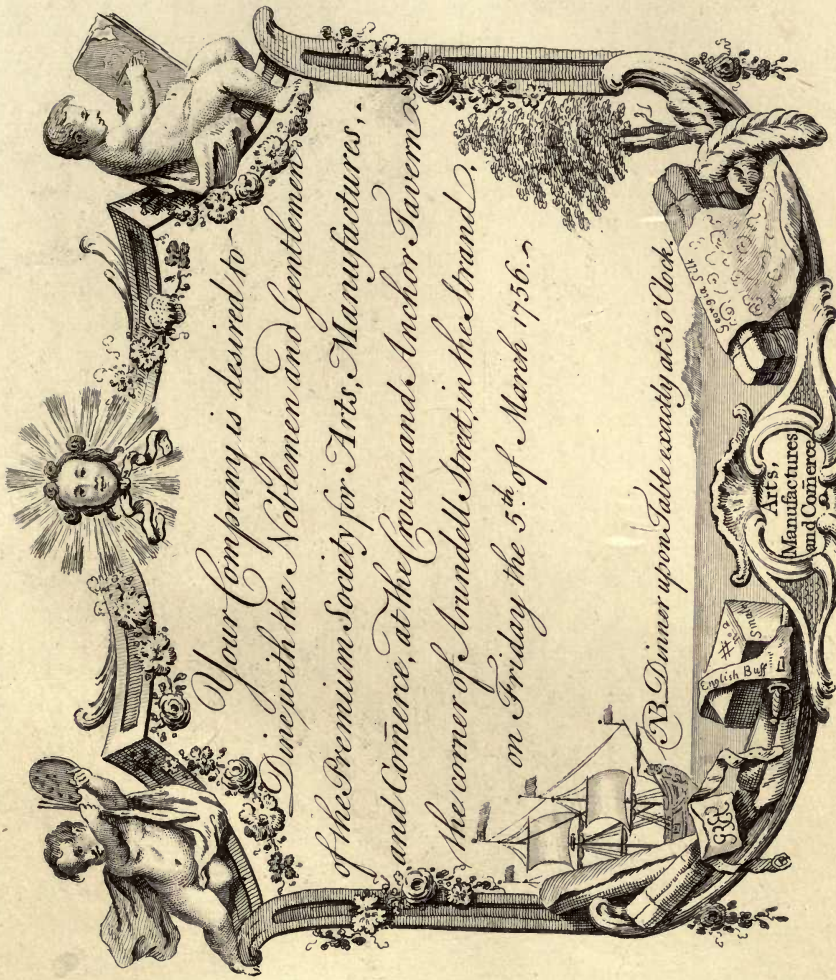 Your Company is desired to
Dine with the Noblemen and Gentlemen
of the Premium Society for Arts, Manufactures,
and Com̄erce, at the Crown and Anchor Tavern
the corner of Arundell Street, in the Strand,
on Friday the 5th of March 1756.
NB Dinner upon Table exactly at 3 o'Clock.
English Buff
# no. 2
Smalt
Georgia Silk
Arts,
Manufactures
and Com̄erce